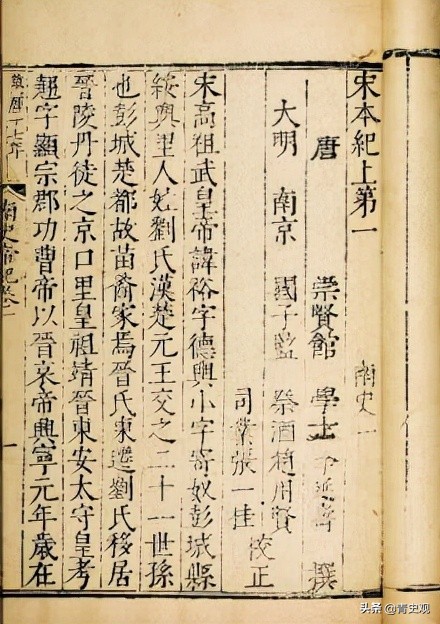 宋本紀上第一 南史一
唐 崇賢館 學士李延壽 撰
大明 南京 國子監 祭酒趙用賢
司業張一桂 校正
宋高祖武皇帝諱裕字德輿小字寄奴彭城縣
綏輿里人姓劉氏漢楚元王交之二十一世孫
也彭城楚都故苗裔家焉晉氏東遷劉氏移居
晉陵丹徒之京口里皇祖靖晉東安太守皇考
翹字顯宗郡功曹帝以晉哀帝興寧元年歲在
萬曆十七年 南史帝紀卷一 一
头条 @青史观